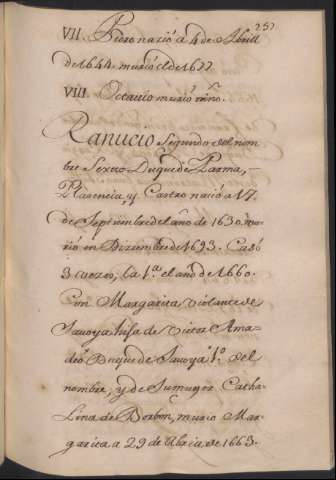 257
VII. Pedro nació a 4 de Abrill
de 1644. murió el de 1677.
VIII. Octavio murió niño.
Ranucio Segundo del nom
bre Sexto Duque de Parma,
Plasencia, y Castro nació a 17
de Septiembre del año de 1630. mu
rió en Diziembre de 1693. Casó
3 vezes, la 1ª. el año de 1660.
con Margarita Violante de
Savoya hija de Victor Ama-
deo Duque de Savoya 1º. del
nombre, y de su muger Catha
lina de Borbon, murio Mar
garita a 29 de Abril de 1663.